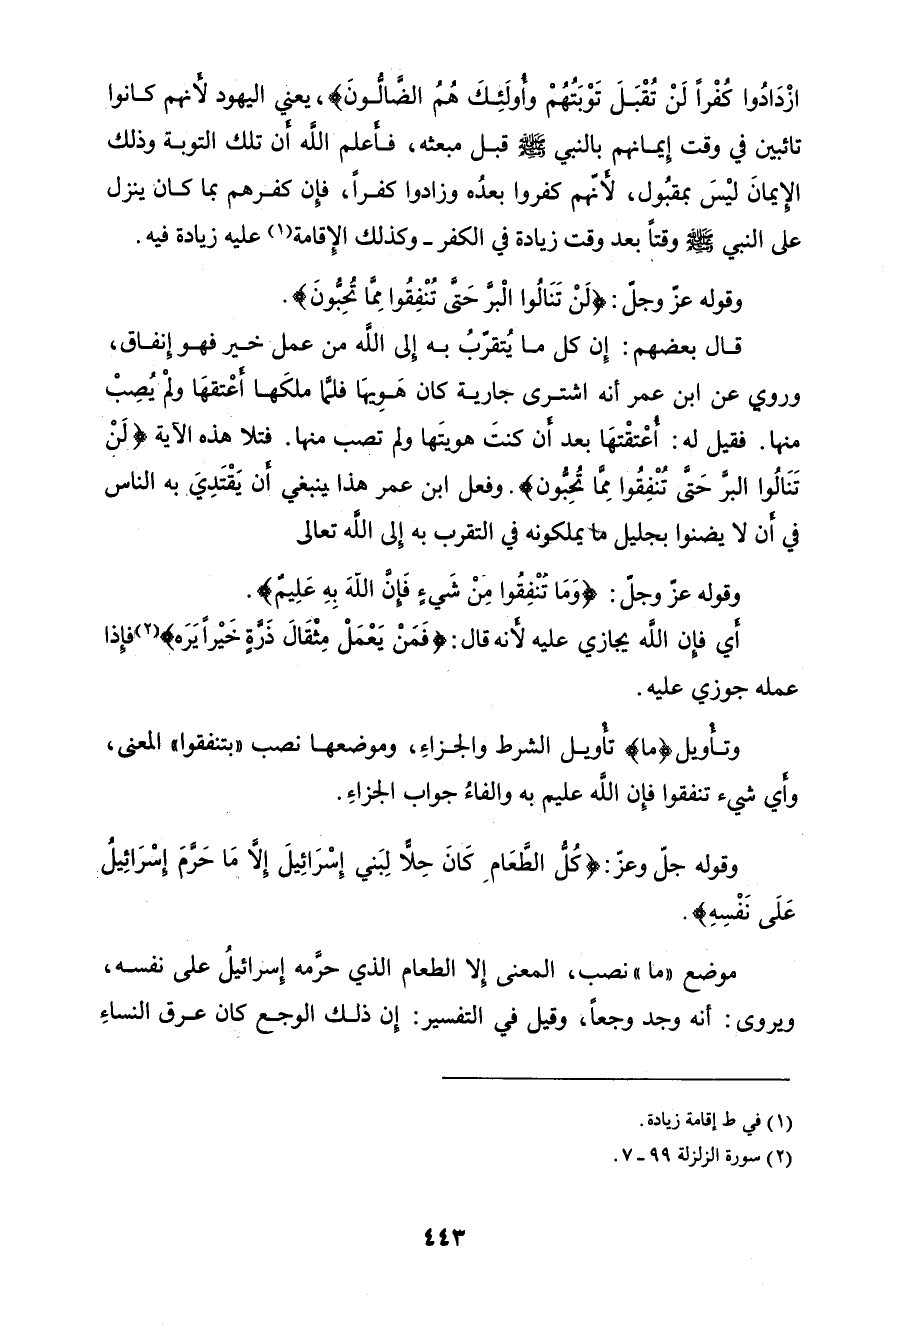 ازْدَادُوا كُفْراً لَنْ تُقْبَلَ تَوْبَتُهُمْ وأُولَئِكَ هُمُ الضَّالُّونَ﴾، يعني اليهود لأنهم كانوا
تائبين في وقت إيمانهم بالنبي ﷺ قبل مبعثه، فأعلم اللَّه أن تلك التوبة وذلك
الإيمانَ ليْسَ بمقبول، لأنّهم كفروا بعدُه وزادوا كفراً، فإن كفرهم بما كان ينزل
على النبي ﷺ وقتاً بعد وقت زيادة في الكفر ـ وكذلك الإقامة(١) عليه زيادة فيه.
وقوله عزّ وجلّ: ﴿لَنْ تَنَالُوا الْبرَّ حَتَّى تُنْفِقُوا مِمَّا تُحِبُّونَ﴾.
قال بعضهم: إن كل ما يُتقرّبُ به إلى اللَّه من عمل خير فهو إنفاق،
وروي عن ابن عمر أنه اشترى جارية كان هَويهَا فلمَّا ملكَها أَعْتقهَا ولمْ يُصِبْ
منها. فقيل له: أعْتقْتهَا بعد أن كنتَ هويتَها ولم تصب منها. فتلا هذه الآية ﴿لَنْ
تَنَالُوا البرَّ حَتَّى تُنْفِقُوا مِمَّا تُحِبُّون﴾. وفعل ابن عمر هذا ينبغي أن يَقْتَدِيَ به الناس
في أن لا يضنوا بجليل ما يملكونه في التقرب به إلى اللَّه تعالى
وقوله عزّ وجلّ: ﴿وَمَا تُنْفِقُوا مِنْ شَيءٍ فَإنَّ اللّهَ بِهِ عَلِيمٌ﴾.
أي فإن اللَّه يجازي عليه لأنه قال: ﴿فَمَنْ يَعْمَلْ مِثْقَالَ ذَرَّةٍ خَيْراً يَرَه﴾(٢) فإذا
عمله جوزي عليه.
وتأويل ﴿ما﴾ تأويل الشرط والجزاء، وموضعها نصب «بتنفقوا» المعنى،
وأي شيء تنفقوا فإن اللَّه عليم به والفاءُ جواب الجزاءِ.
وقوله جلّ وعزّ: ﴿كُلُّ الطَّعَامِ كَانَ حِلًّا لِبَني إسْرَائِيلَ إلَّا مَا حَرَّمَ إسْرَائِيلُ
عَلَى نَفْسِهِ﴾.
موضع «ما» نصب، المعنى إلا الطعام الذي حرَّمه إسرائيلُ على نفسه،
ويروى: أنه وجد وجعاً، وقيل في التفسير: إن ذلك الوجع كان عرق النساءِ
(١) في ط إقامة زيادة.
(٢) سورة الزلزلة ٩٩ ـ ٧.
٤٤٣